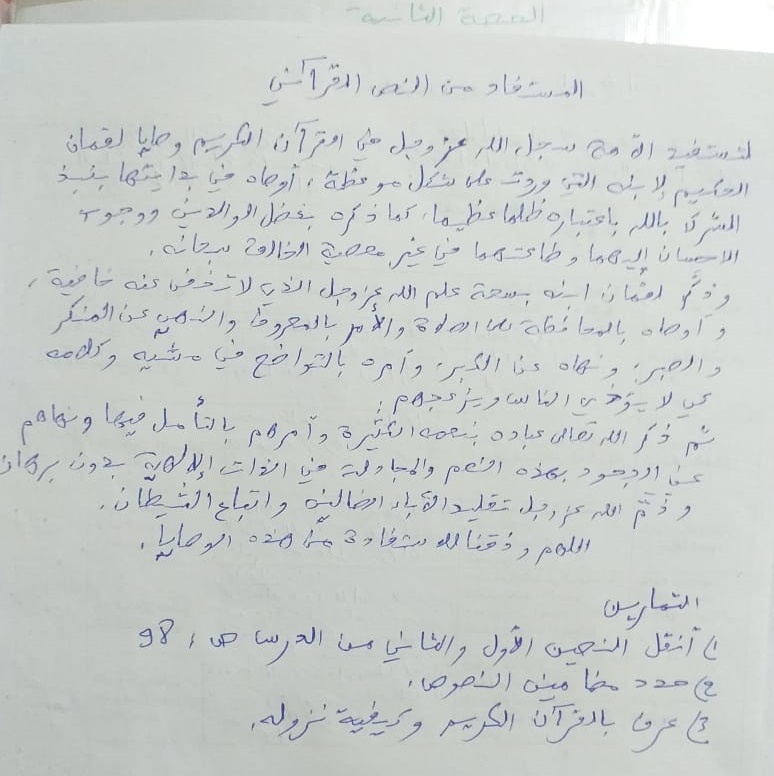 الصفحة الثانية
المستفاد من النص القرآني
لتستفيد الأمة سجل الله عز وجل في القرآن الكريم وصايا لقمان
الحكيم لإبنه التي وردت على شكل موعظة، أوصاه في بدايتها بنبذ
الشرك بالله باعتباره ظلما عظيما، كما ذكره بفضل الوالدين ووجوب
الاحسان إليهما وطاعتهما في غير معصية الخالق سبحانه.
وذكّر لقمان ابنه بسعة علم الله عز وجل الذي لا تخفى عنه خافية،
و أوصاه بالمحافظة على الصلاة والأمر بالمعروف والنهي عن المنكر
والصبر، ونهاه عن الكبر، وأمره بالتواضع في مشيه وكلامه
كي لا يؤذي الناس ويزعجهم.
ثم ذكر الله تعالى عباده بنعمه الكثيرة وأمرهم بالتأمل فيها ونهاهم
عن الجحود بهذه النعم والمجادلة في الذات الإلهية بدون برهان
و ذمّ الله عز وجل تقليد الآباء الضالين واتباع الشيطان.
اللهم وفقنا للاستفادة من هذه الوصايا.
التمارين
1) أنقل النصين الأول والثاني من الدرس ص: 98
2) حدد مضامين النصوص.
3) عرف بالقرآن الكريم وكيفية نزوله.